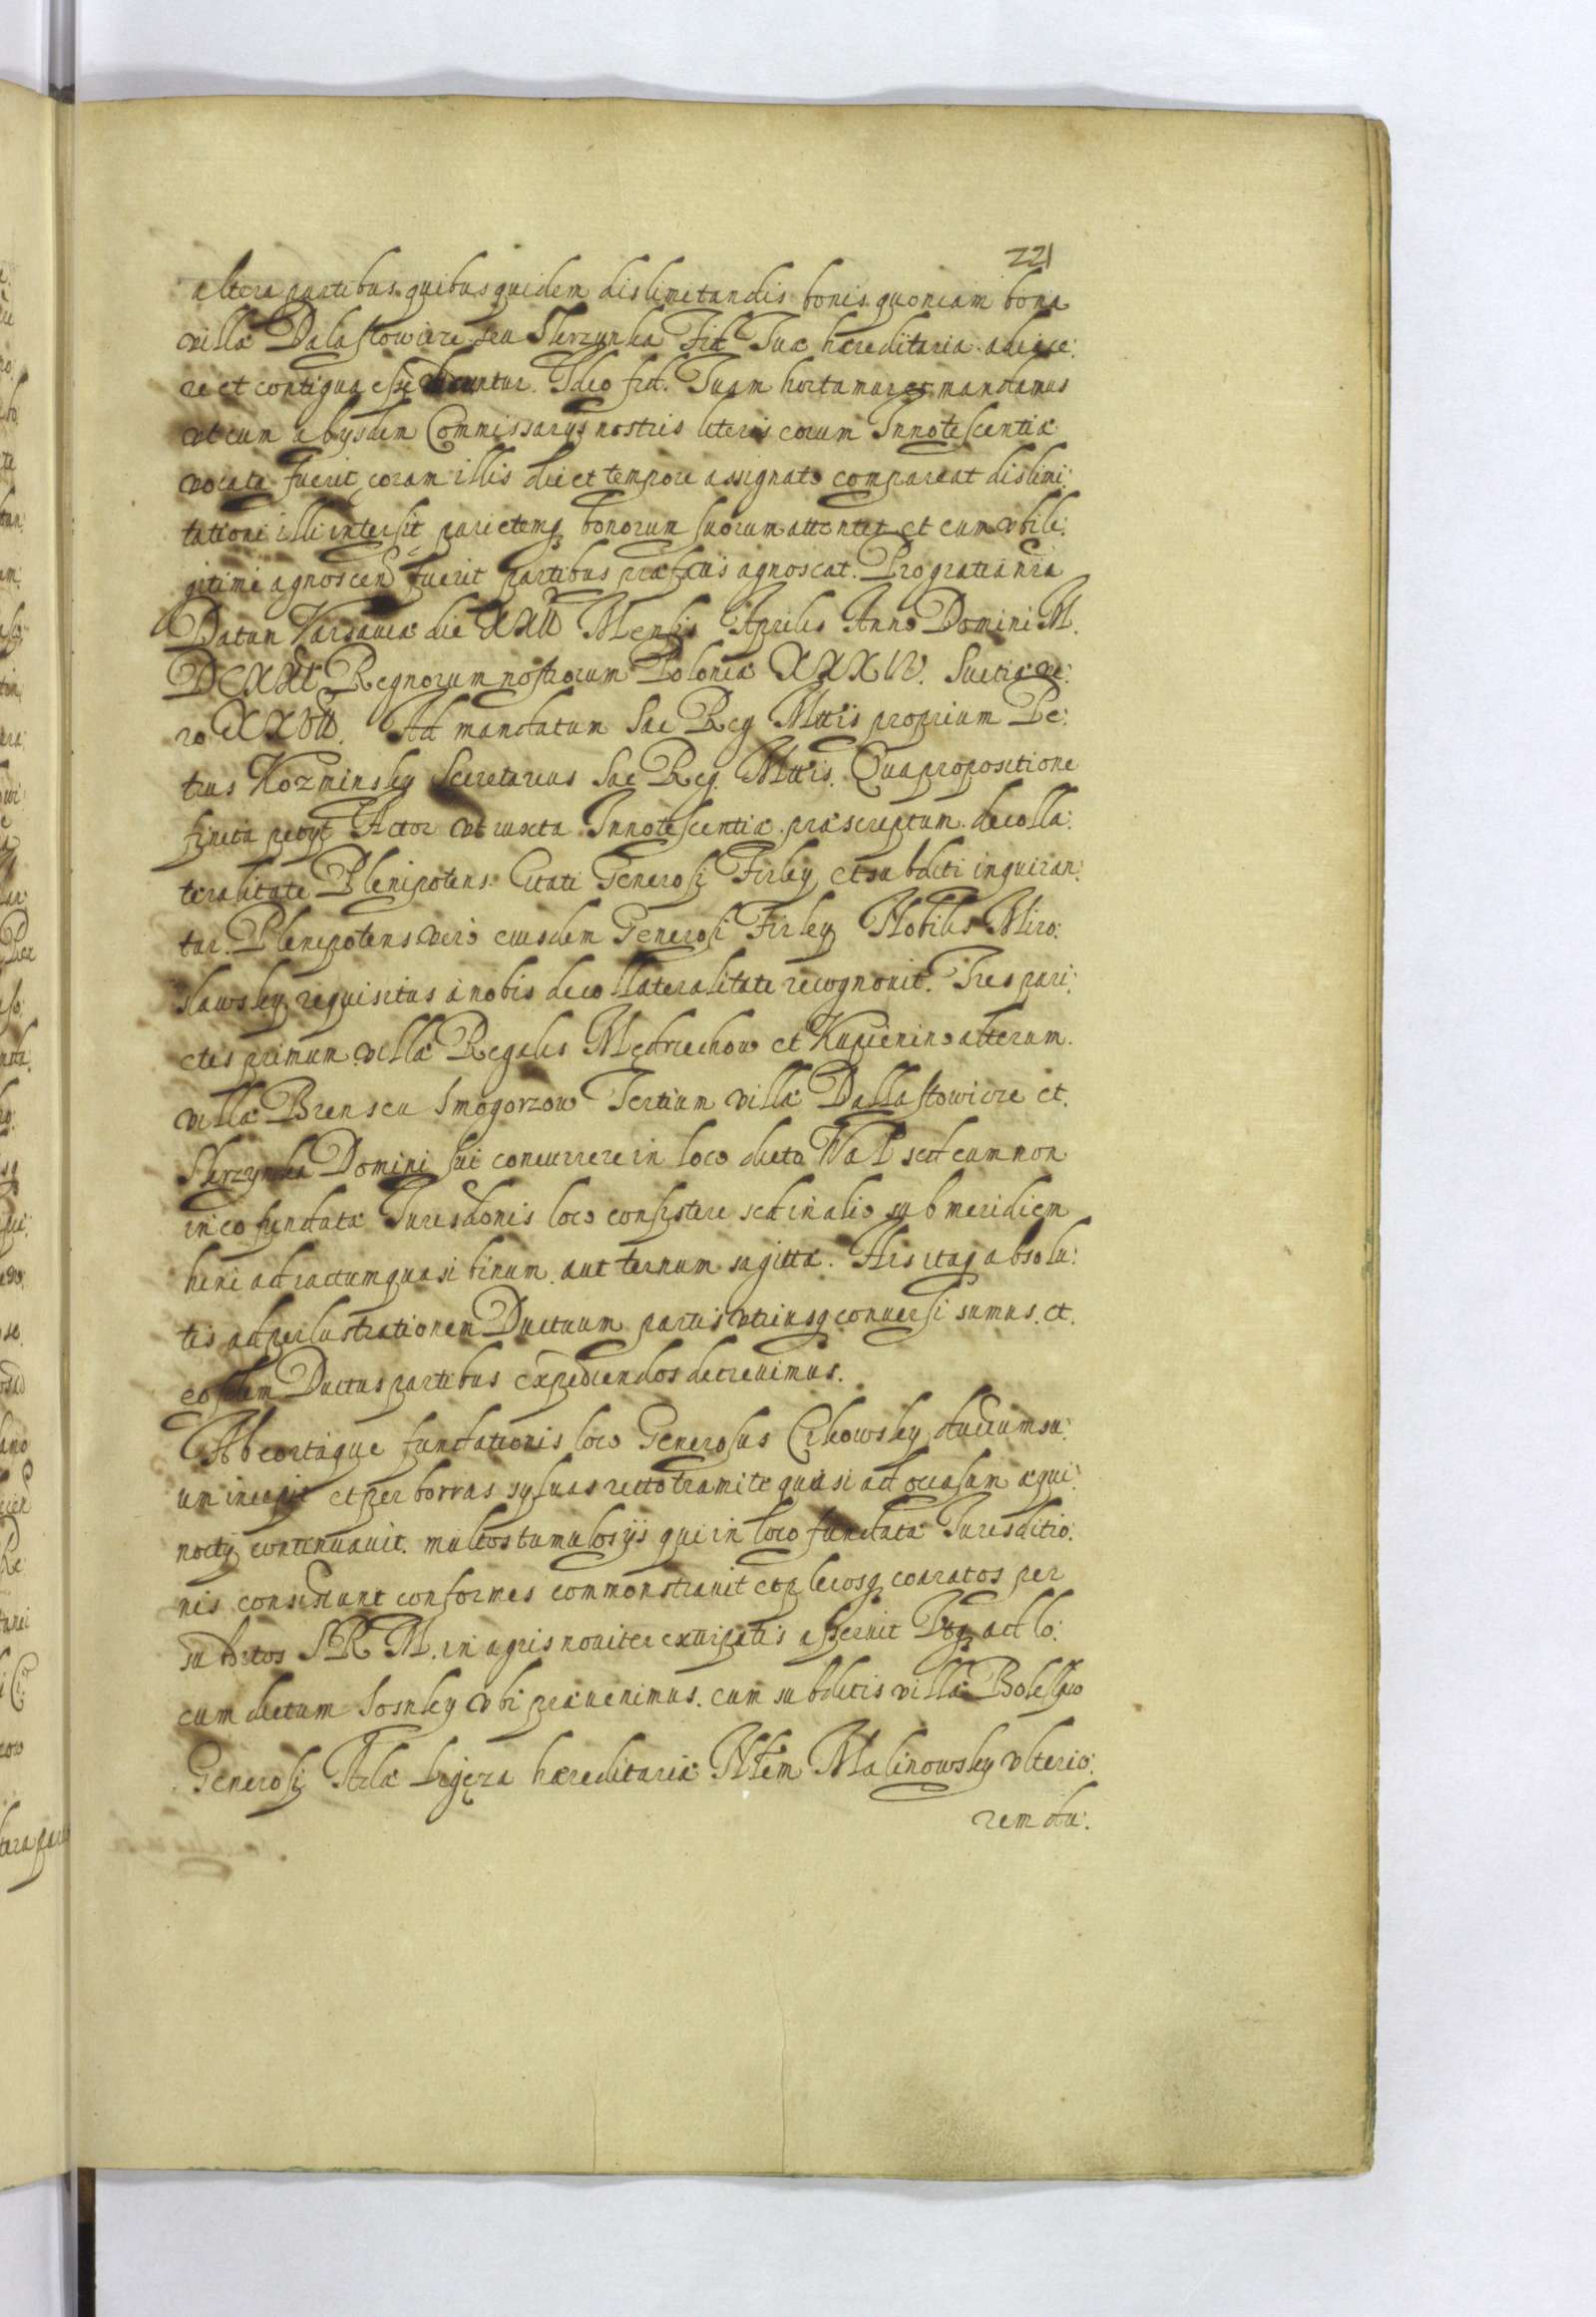 221
altera partibus quibus quidem dislimitandis bonis quoniam bona
villæ Dalastowicze seu Skrzynka Fid. Tuæ hæreditaria adiace:
re et contigua esse dicuntur. Ideo fid. Tuam hortamur et mandamus
vt cum ab ijsdem Commissarijs nostris literis eorum Innotescentiæ
vocata fuerit coram illis die et tempore assignato compareat dislimi:
tationi illi intersit parietemq bonorum suorum attentet et eum vbi le:
gitime agnoscen fuerit partibus præfatis agnoscat. Pro gratia nra
Datum Varsauiæ die XXII Mensis Aprilis Anno Domini M.
DCXXI Regnorum nostrorum Poloniæ XXXIV. Suetiæ ve:
ro XXVII. Ad mandatum Sac Reg Mttis proprium Pe:
trus Kozminsky Secretarius Sac Reg. Mttis. Qua propositione
finita petijt Actor vt iuxta Innotescentiæ præscriptum de colla:
teralitate Plenipotens Citati Generosi Firley et subditi inquiran:
tur. Plenipotens vero eiusdem Generosi Firley Nobilis Miro:
slawsky requisitus a nobis de collateralitate recognouit. Tres pari:
etes primum villæ Regalis Mędrzechow et Kupienino alterum
villæ Bren seu Smogorzow Tertium villæ Dallastowicze et
Skrzynka Domini sui concurrere in loco dicto Wal sed eum non
in eo fundatæ Iurisdonis loco consistere sed in alio sub meridiem
hinc ad iactum quasi binum aut ternum sagittæ. His itaq absolu:
tis ad perlustrationem Ductuum partis vtriusq conuersi sumus et
eosdem Ductus partibus expediendos decreuimus.
Ab eo itaque fundationis loco Generosus Cikowsky ductum su:
um incepit et per borras syluas recto tramite quasi ad occasum æqui:
noctij continuauit multos tumulos ijs qui in loco fundatæ Iurisditio:
nis consistunt conformes commonstrauit et plerosq coaratos per
subditos S R M. in agris nouiter extirpatis asseruit Vsq ad lo:
cum dictum Sosnky vbi præuenimus cum subditis villæ Boleslaw
Generosi Ligęza hæreditariæ Nblem Malinowsky vlterio:
rem du: